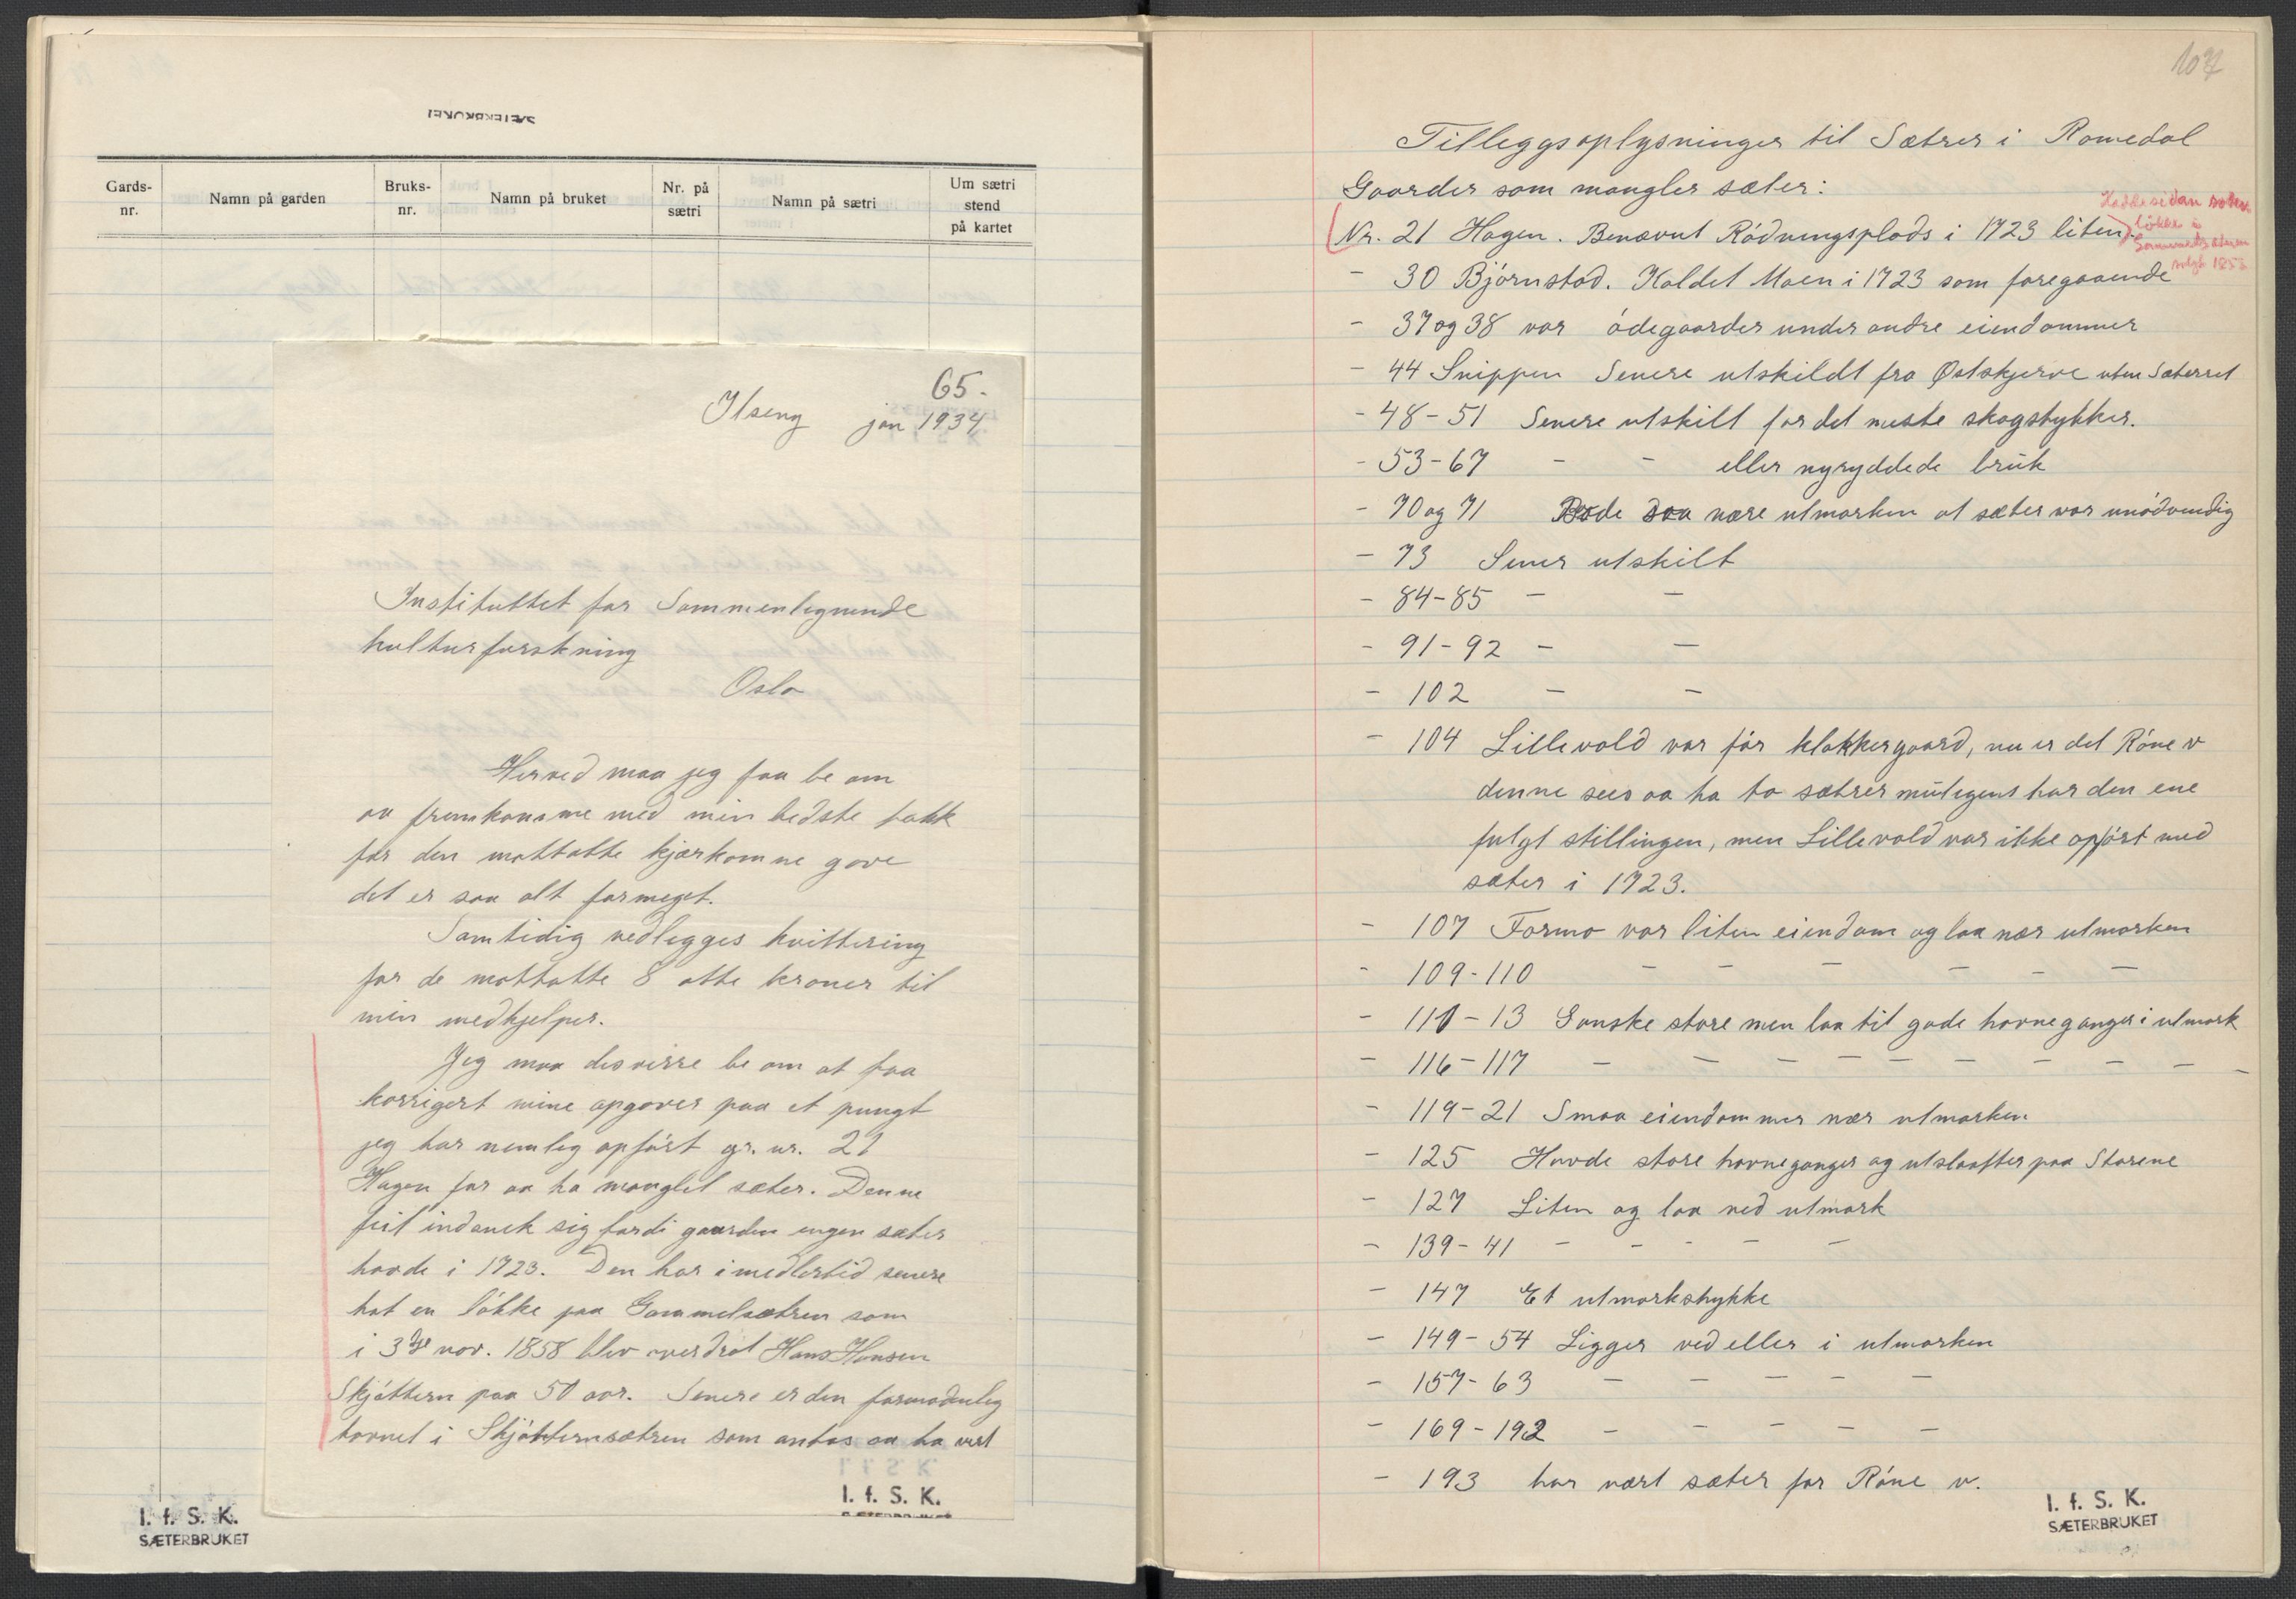 SÆTERBRUKET
Gards-
nr.
Namn på garden
Bruks-
nr.
Namn på bruket
Nr. på
sætri
Namn på sætri
Um sætri
stend
på kartet
65.
Ilseng jan 1934
Instituttet for Sammenlignende
kulturforskning
Oslo
Herved maa jeg faa be om
aa fremkomme med min bedste takk
for den mottatte kjærkomne gave
det er saa alt formeget.
Samtidig vedlegges kvittering
for de mottatte 8 otte kroner til
min medhjelper.
Jeg maa desverre be om at faa
korrigert mine opgaver paa et pungt
jeg har nemlig opført gr. nr. 21
Hagen for aa ha manglet sæter. Denne
feil indsnek sig fordi gaarden ingen sæter
havde i 1723. Den har imedlertid senere
hat en løkke paa Gammelsætren som
i 3de nov. 1858 blev overdrat Hans Hansen
Skjøttern paa 50 aar. Senere er den formodenlig
havnet i Skjøtternsætren som antas aa ha vært
I. f. S. K.
I. f. S. K.
SÆTERBRUKET
107
Tilleggsoplysninger til Sætrer i Romedal
Gaarder som mangler sæter:
Hadde sidan
løkke i
Gammelsætren
solgt 1858
Nr. 21 Hagen. Benævnt Rødningsplads i 1723 liten.
- 30 Bjørnstad. Kaldet Moen i 1723 som foregaaende
- 37 og 38 var ødegaarder under andre eiendommer
- 44 Snippen Senere utskildt fra Østskjerve uten Sæterret
- 48-51 Senere utskilt for det meste skogstykker.
- 53-67 - - eller nyryddede bruk
- 70 og 71 Bode saa nære utmarken at sæter var unødvendig
- 73 Sener utskilt
- 84-85 - -
- 91-92 - -
- 102 - -
- 104 Lillevold var før klokkergaard, nu er det Røne v
denne sees aa ha to sætrer muligens har den ene
fulgt stillingen, men Lillevold var ikke opført med
sæter i 1723.
- 107 Formo var liten eiendom og laa nær utmarken
- 109-110 - - - - - -
- 111-13 Ganske store men laa til gode havneganger i utmark
- 116-117 - - - - - - - - - -
- 119-21 Smaa eiendommer nær utmarken
- 125 Havde store havneganger og utslaatter paa Starene
- 127 Liten og laa ved utmark
- 139-41 - - - - -
- 147 Et utmarkstykke
- 149-54 Ligger ved eller i utmarken
- 157-63 - - - - -
- 169-192 - - - - -
- 193 har vært sæter for Røne v.
I. f. S. K.
SÆTERBRUKET